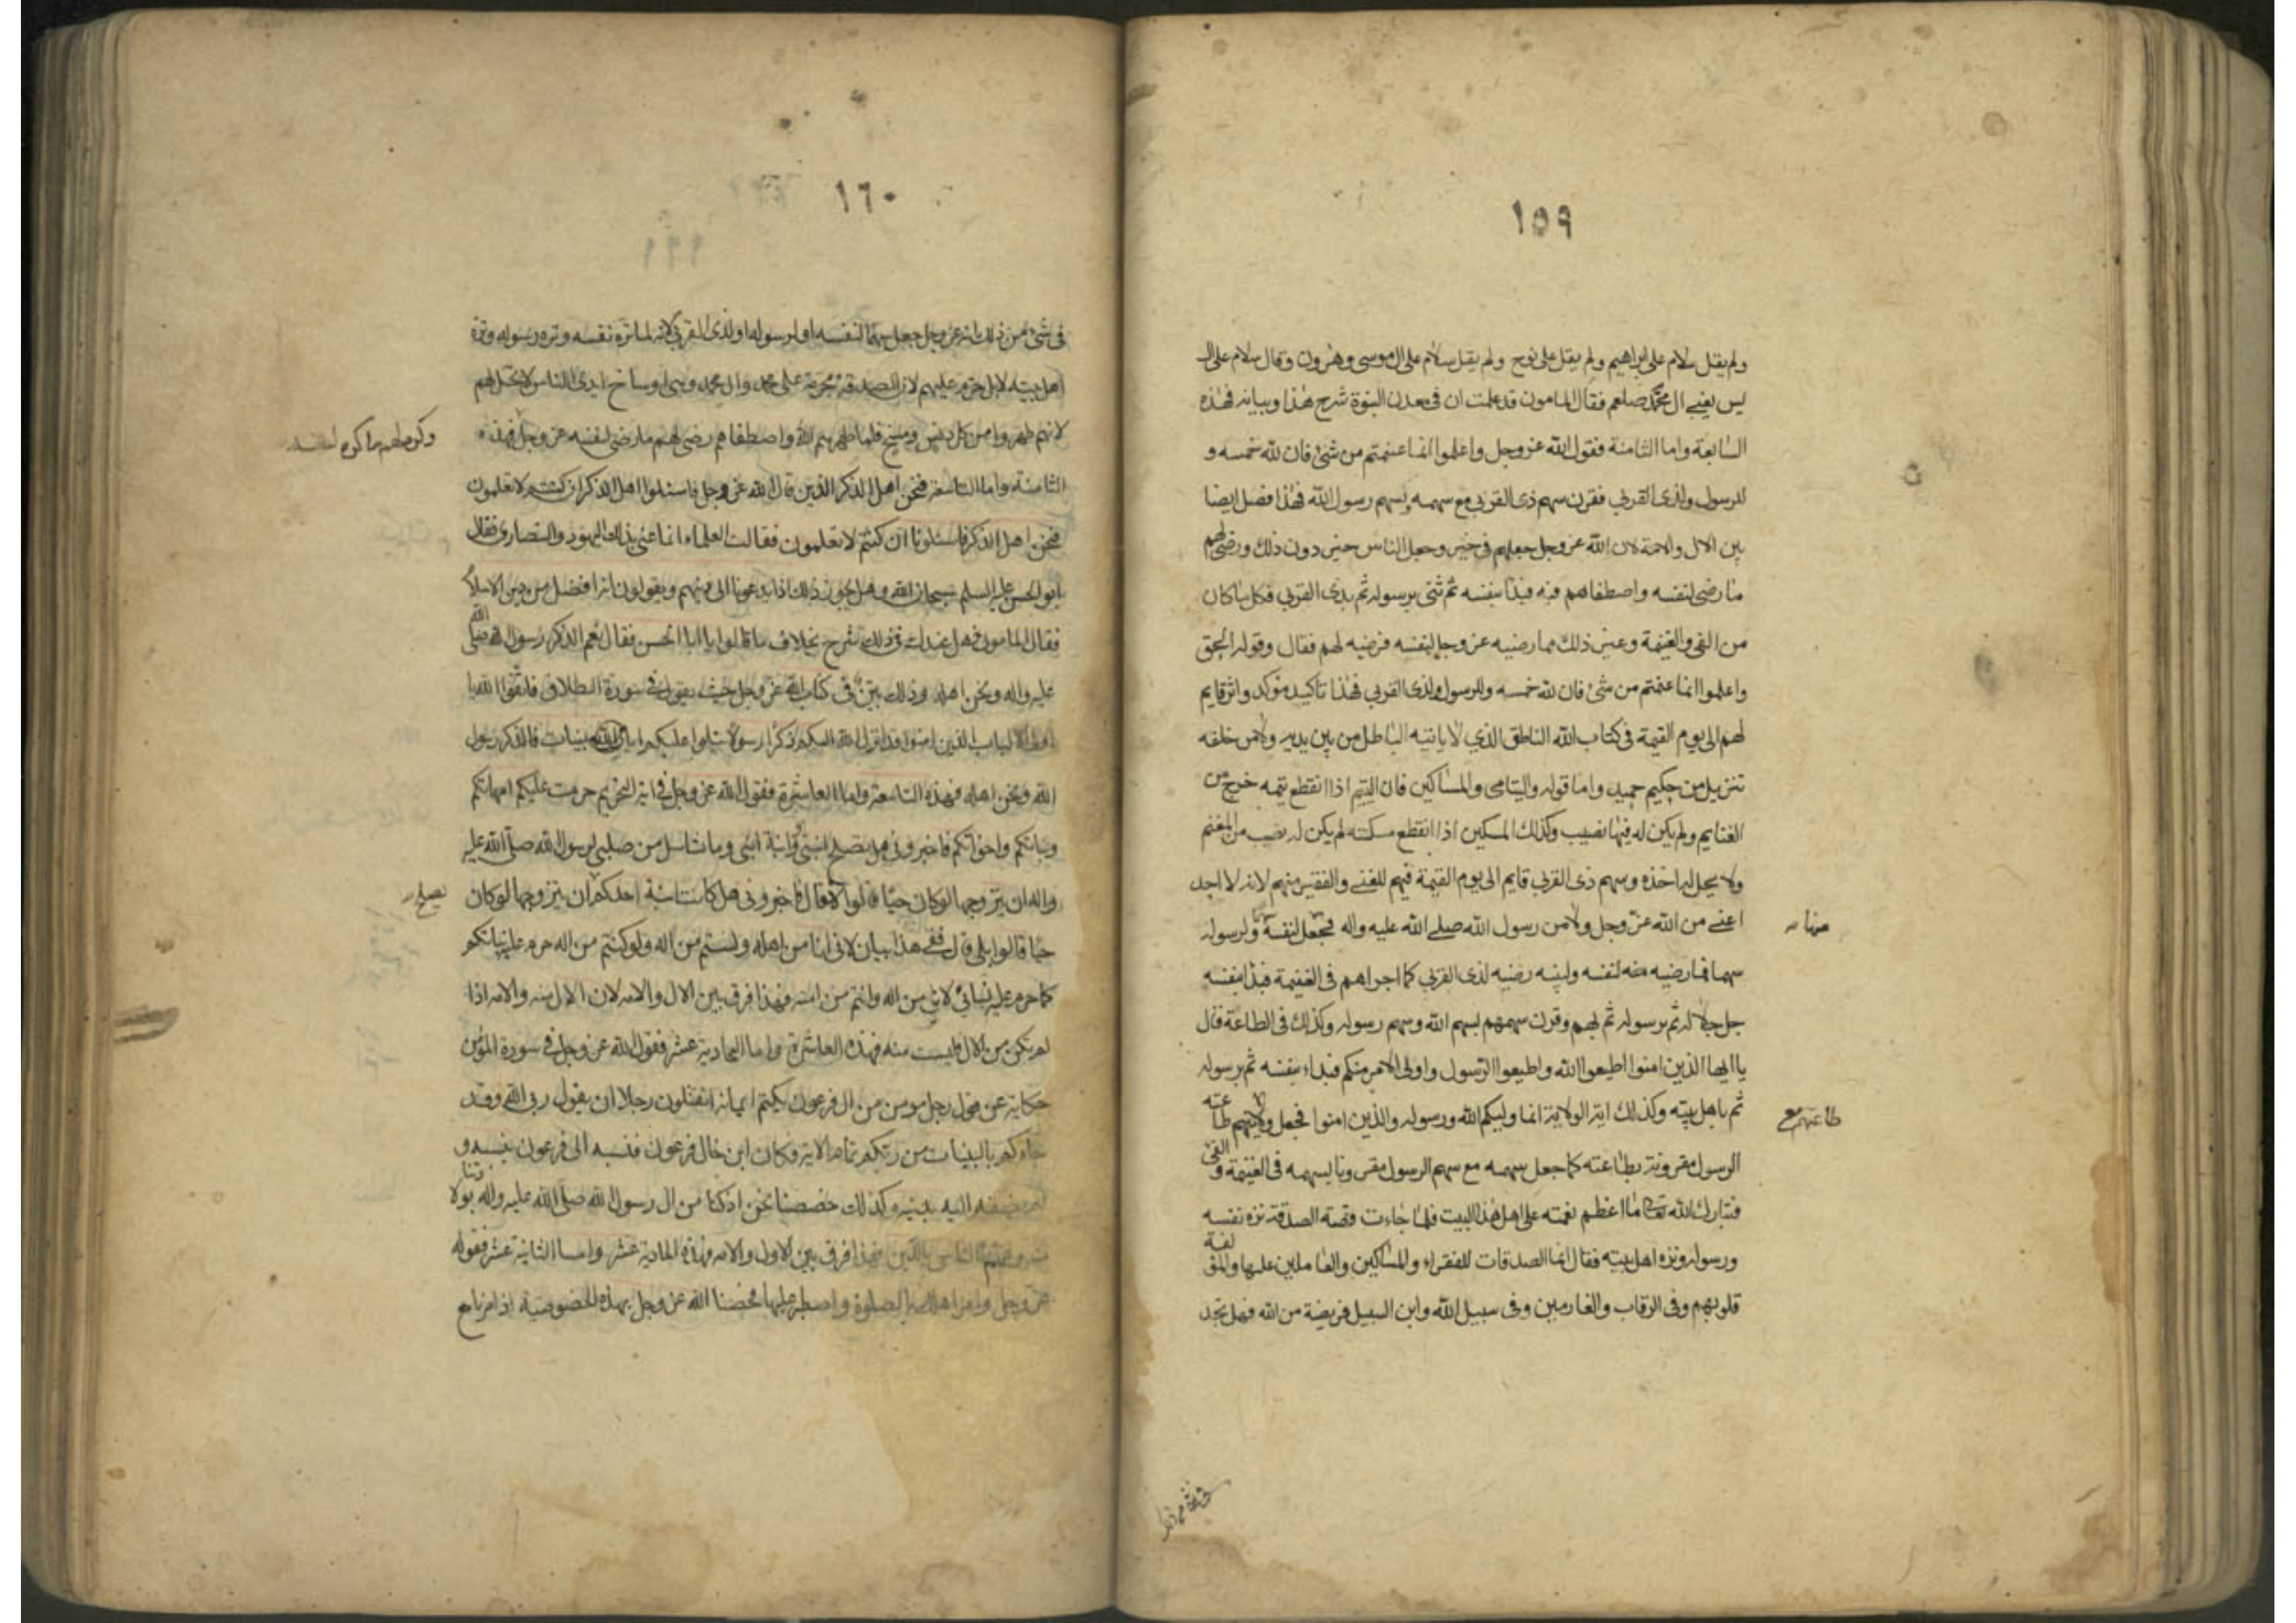 ١٥٩
ولم يقل سلام على ال ابراهيم ولم يقل على نوح ولم يقل سلام على ال موسى وهرون وقال سلام على ال
يس يعنى ال محمد صلعم فقال المامون قد علمت ان فى معدن النبوة شرح هذا وبيانه فهذه
السابعة واما الثامنة فقول الله عز وجل واعلموا انما غنمتم من شئ فان لله خمسه و
للرسول ولذى القربى فقرن سهم ذى القربى مع سهمه بسهم رسول الله فهذا فصل ايضا
بين الال والامة لان الله عز وجل جعلهم فى حيز وجعل الناس حيز دون ذلك ورضى لهم
ما رضى لنفسه واصطفاهم فيه فبدا بنفسه ثم ثنى برسوله ثم بذى القربى فكل ما كان
من الفئ والغنيمة وغير ذلك مما رضيه عز وجل لنفسه فرضيه لهم فقال وقوله الحق
واعلموا انما غنمتم من شئ فان لله خمسه وللرسول ولذى القربى فهذا تاكيد مؤكد واثر قايم
لهم الى يوم القيمة فى كتاب الله الناطق الذي لا ياتيه الباطل من بين يديه ولا من خلفه
تنزيل من حكيم حميد واما قوله واليتامى والمساكين فان اليتيم اذا انقطع يتمه خرج من
الغنايم ولم يكن له فيها نصيب وكذلك المسكين اذا انقطع مسكنته لم يكن له نصيب من المغنم
ولا يحل له اخذه وسهم ذى القربى قايم الى يوم القيمة فيهم للغنى والفقير منهم لانه لا احد
اغنى من الله عز وجل ولا من رسول الله صلى الله عليه واله فجعل لنفسه ولرسوله
منها
سهما فما رضيه منه لنفسه ولنبيه رضيه لذى القربى كما اجراهم فى الغنيمة فبدا بنفسه
جل جلاله ثم برسوله ثم بهم وقرن سهمهم بسهم الله وسهم رسوله وكذلك فى الطاعة قال
يا ايها الذين امنوا اطيعوا الله واطيعوا الرسول واولى الامر منكم فبداء بنفسه ثم برسوله
ثم باهل بيته وكذلك اية الولاية انما وليكم الله ورسوله والذين امنوا فجعل ولايتهم طاعته
طاعتهم مع
الرسول مقرونة بطاعته كما جعل سهمه مع سهم الرسول مقرونا بسهمه فى الغنيمة والفئ
فتبارك الله تعالى ما اعظم نعمته على اهل هذا البيت فلما جاءت قصة الصدقة نزه نفسه
ورسوله ونزه اهل بيته فقال انما الصدقات للفقراء والمساكين والعاملين عليها والمؤلفة
قلوبهم وفى الرقاب والغارمين وفى سبيل الله وابن السبيل فريضة من الله فهل تجد
١٦٠
فى شئ من ذلك انه عز وجل جعل سهما لنفسه او لرسوله او لذى القربى لانه لما نزه نفسه ونزه رسوله ونزه
اهل بيته لا بل حرم عليهم لان الصدقة محرمة على محمد وال محمد وهى اوساخ ايدى الناس لا تحل لهم
لانهم طهروا من كل دنس ووسخ فلما طهرهم الله واصطفاهم رضى لهم ما رضى لنفسه عز وجل فهذه
الثامنة واما التاسعة فنحن اهل الذكر الذين قال الله عز وجل فاسئلوا اهل الذكر ان كنتم لا تعلمون
فنحن اهل الذكر فاسئلونا ان كنتم لا تعلمون فقالت العلماء انما عنى بذلك اليهود والنصارى فقال
ابو الحسن عليه السلم سبحان الله وهل يجوز ذلك اذا يدعونا الى دينهم ويقولون انه افضل من دين الاسلام
فقال المامون فهل عندك فى ذلك شرح بخلاف ما قالوا يا ابا الحسن فقال نعم الذكر رسول الله صلى الله
عليه واله ونحن اهله وذلك بين فى كتاب الله عز وجل حيث يقول فى سورة الطلاق فاتقوا الله يا
اولى الالباب الذين امنوا قد انزل الله اليكم ذكرا رسولا يتلوا عليكم ايات الله مبينات فالذكر رسول
الله ونحن اهله فهذه التاسعة واما العاشرة فقول الله عز وجل فى اية التحريم حرمت عليكم امهاتكم
وبناتكم واخواتكم فاخبرونى هل تصلح ابنتى وابنة ابنى وما تناسل من صلبى لرسول الله صلى الله عليه
واله ان يتزوجها لو كان حيا قالوا لا قال فاخبرونى هل كانت ابنة احدكم ان يتزوجها لو كان
تصلح
حيا قالوا بلى قال ففى هذا بيان لانى انا من اهله ولستم من اله ولو كنتم من اله حرم عليه بناتكم
كما حرم عليه بناتى لانى من اله وانتم من امته فهذا فرق بين الال والامة لان الال منه والامة اذا
لم تكن من الال فليست منه فهذه العاشرة واما الحادية عشر فقول الله عز وجل فى سورة المؤمن
حكاية عن قول رجل مومن من ال فرعون يكتم ايمانه اتقتلون رجلا ان يقول ربى الله وقد
جاءكم بالبينات من ربكم تمام الاية فكان ابن خال فرعون فنسبه الى فرعون بنسبه و
لم يضفه اليه بدينه وكذلك خصصنا نحن اذ كنا من ال رسول الله صلى الله عليه واله بولادتنا
منه وعممنا الناس بالدين فهذا فرق بين الاول والامة فهذه الحادية عشر واما الثانية عشر فقوله
عز وجل وامر اهلك بالصلوة واصطبر عليها فخصنا الله عز وجل بهذه الخصوصية اذ امرنا مع